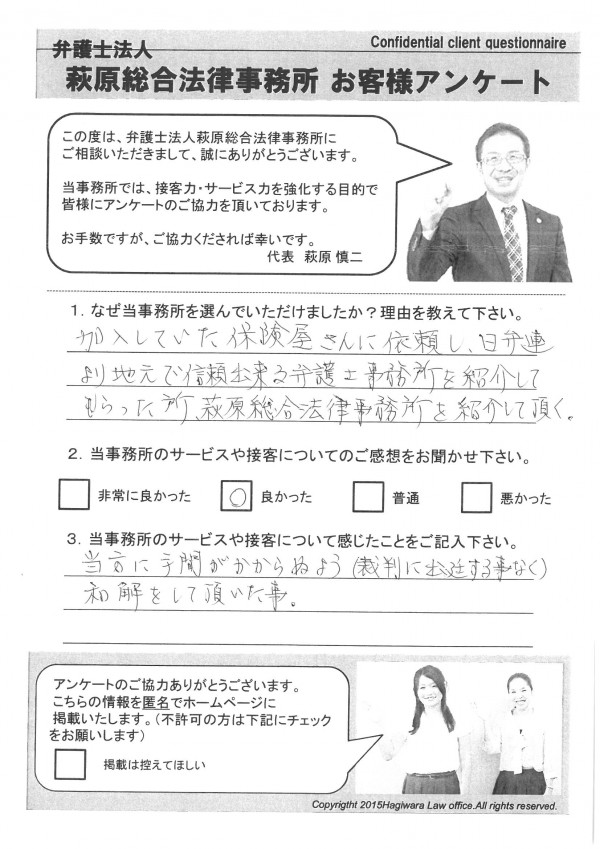 Confidential client questionnaire
弁護士法人
萩原総合法律事務所 お客様アンケート
この度は、弁護士法人萩原総合法律事務所に
ご相談いただきまして、誠にありがとうございます。
当事務所では、接客力・サービス力を強化する目的で
皆様にアンケートのご協力を頂いております。
お手数ですが、ご協力くだされば幸いです。
代表 萩原 慎二
1. なぜ当事務所を選んでいただけましたか？理由を教えて下さい。
加入していた保険屋さんに依頼し、日弁連
より地元で信頼出来る弁護士事務所を紹介して
もらった所、萩原総合法律事務所を紹介して頂く。
2. 当事務所のサービスや接客についてのご感想をお聞かせ下さい。
非常に良かった ○ 良かった 普通 悪かった
3. 当事務所のサービスや接客について感じたことをご記入下さい。
当方に手間がかからぬよう(裁判に出廷する事なく)
和解をして頂いた事。
アンケートのご協力ありがとうございます。
こちらの情報を匿名でホームページに
掲載いたします。（不許可の方は下記にチェック
をお願いします）
掲載は控えてほしい
Copyrigtht 2015Hagiwara Law office.All rights reserved.